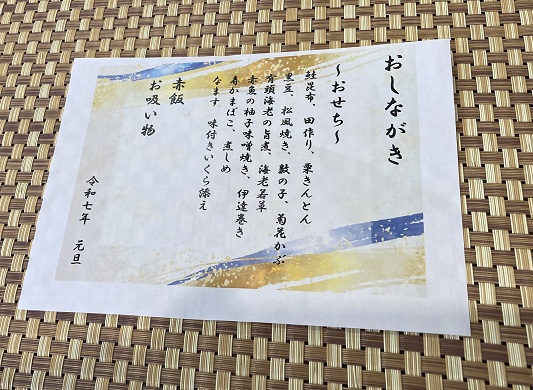 おしながき
～おせち～
鮭昆布、田作り、栗きんとん
黒豆、松風焼き、数の子、菊花かぶ
有頭海老の旨煮、海老若草
赤魚の柚子味噌焼き、伊達巻き
寿かまぼこ、煮しめ
なます 味付きいくら添え
赤飯
お吸い物
令和七年 元旦